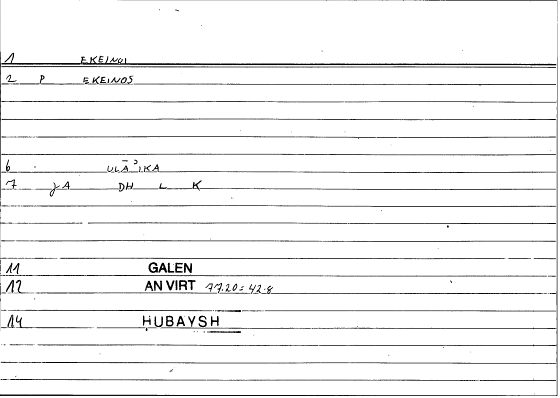 1 EKEINOI
2 P EKEINOS
6 ULĀʾIKA
7 JA DH L K
11 GALEN
12 AN VIRT 77.20 = 42.8
14 HUBAYSH